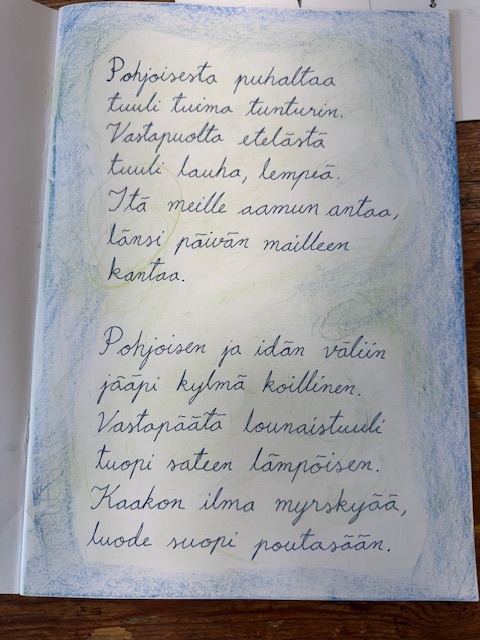 Pohjoisesta puhaltaa
tuuli tuima tunturin.
Vastapuolta etelästä
tuuli lauha, lempeä.
Itä meille aamun antaa,
länsi päivän mailleen
kantaa.
Pohjoisen ja idän väliin
jääpi kylmä koillinen.
Vastapäätä lounaistuuli
tuopi sateen lämpöisen.
Kaakon ilma myrskyää,
luode suopi poutasään.